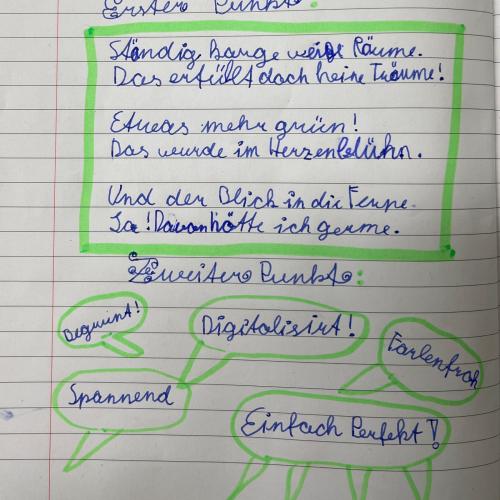 Erster Punkt:
Ständig karge weiße Räume.
Das erfüllt doch keine Träume!
Etwas mehr grün!
Das wurde im Herzen blühn.
Und der Blick in die Ferne.
Ja! Davon hätte ich gerne.
Zweiter Punkt:
Digitalisirt!
Farbenfroh
Spannend
Einfach Perfekt!